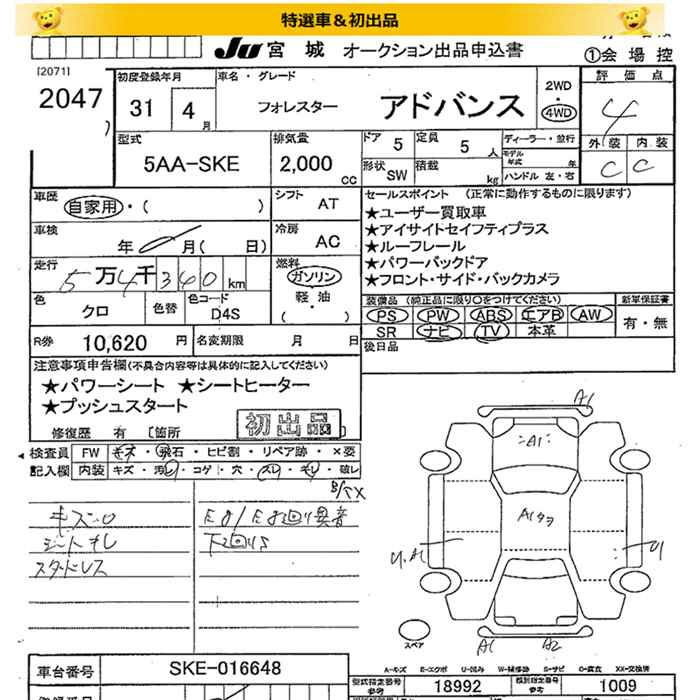 特選車&初出品
JU宮城 オークション出品申込書
①会場控
[2071]
2047
初度登録年月
31
4
月
車名・グレード
フォレスター
アドバンス
2WD
4WD
評価点
4
型式
5AA-SKE
排気量
2,000
cc
ドア
5
定員
5
人
形状
SW
積載
kg
ディーラー・並行
モデル年式
年
ハンドル 左・右
外装
内装
C
C
車歴
自家用・( )
シフト
AT
車検
年
月(
日)
冷房
AC
走行
5万4千340km
燃料
ガソリン
軽油
( ・ )
色
クロ
色替
色コード
D4S
R券
10,620
円
名変期限
月
日
セールスポイント (正常に動作するものに限ります)
★ユーザー買取車
★アイサイトセイフティプラス
★ルーフレール
★パワーバックドア
★フロント・サイド・バックカメラ
装備品(純正品に限り○をつけてください)
新車保証書
PS
PW
ABS
エアB
AW
SR
ナビ
TV
本革
有・無
後日品
注意事項申告欄(不具合内容等は具体的に記入してください)
★パワーシート ★シートヒーター
★プッシュスタート
初出品
修復歴 有 〔箇所
検査員
記入欄
FW
キズ・飛石・ヒビ割・リペア跡・×要
内装
キズ・汚れ・コゲ・穴・スレ・キレ・破レ
キズ・凹
シートキレ
スタッドレス
E音/E廻り異音
下廻りS
A1
A1
U.A1
U
A1
A2
スペア
A-キズ E-エクボ U-凹み W-補修跡 S-サビ C-腐食 XX-交換済
車台番号
SKE-016648
型式指定番号
参考
18992
類別指定番号
参考
1009